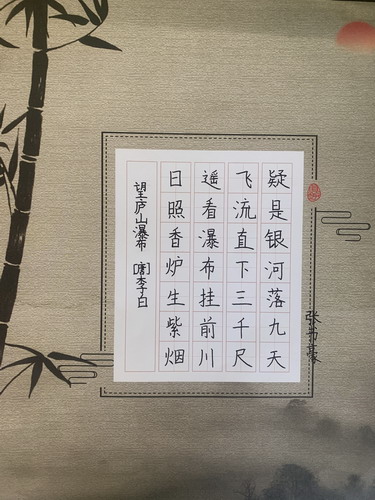 望庐山瀑布 [唐]李白
日照香炉生紫烟
遥看瀑布挂前川
飞流直下三千尺
疑是银河落九天
张书豪